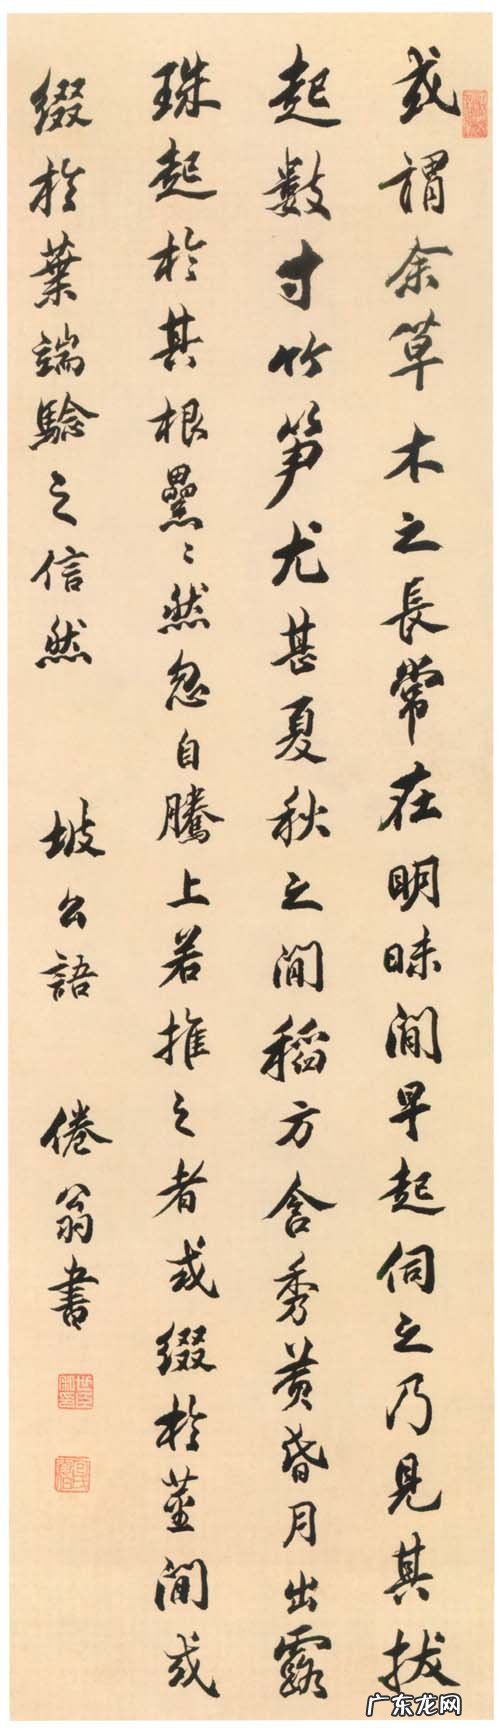 或謂余草木之長常在明昧間早起伺之乃見其拔
起數寸竹笋尤甚夏秋之間稻方含秀黃昏月出露
珠起於其根纍〻然忽自騰上若推之者或綴於莖間或
綴於葉端驗之信然 坡公語 倦翁書
广东龙网